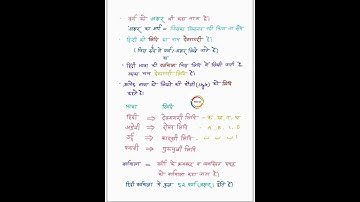 वर्ण को अक्षर भी कहा जाता है।
अक्षर का अर्थ = जिसका विभाजन नहीं किया जा सके
हिन्दी की लिपि का नाम देवनागरी है।
(जिस रूप में वर्ण / अक्षर लिखे जाते हैं)
या
हिंदी भाषा की वर्णमाला जिस लिपि में लिखी जाती है
उसका नाम देवनागरी लिपि है।
प्रत्येक भाषा को लिखने की शैली (Style) को लिपि
कहते हैं।
भाषा लिपि
हिंदी ⇒ देवनागरी लिपि - क, ख, ग, घ
अंग्रेजी ⇒ रोमन लिपि -
उर्दू ⇒ फारसी लिपि -
पंजाबी ⇒ गुरुमुखी लिपि
वर्णमाला = वर्णों के क्रमबद्ध व व्यवस्थित समूह
को वर्णमाला कहा जाता है।
हिंदी वर्णमाला में कुल 52 वर्ण (अक्षर) होते हैं।